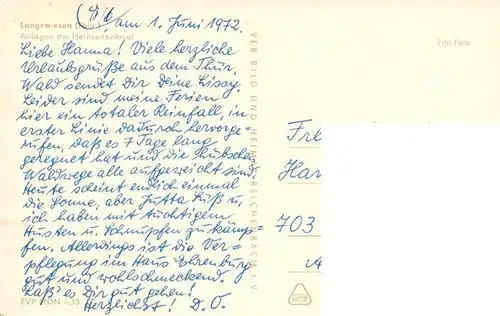 (86)
, am 1. Juni 1972.
Langewiesen (Thür.)
Anlagen am Heinsedenkmal
Liebe Hanna! Viele herzliche
Urlaubsgrüße aus dem Thür.
Wald sendet Dir Deine Lissy.
Leider sind meine Ferien
hier ein totaler Reinfall, in
erster Linie dadurch hervorge-
rufen, daß es 7 Tage lang
geregnet hat und die
Waldwege alle aufgeweicht sind.
Heute scheint endlich einmal
die Sonne, aber Jutta Luß u.
ich haben mit tüchtigem
Husten u. Schnupfen zu kämp=
fen. Allerdings ist die Ver=
pflegung im Haus Ehrenburg
gut und wohlschmeckend.
Laß' es Dir gut gehen!
Herzlichst! D. O.
EVP MDN –.15
VEB BILD UND HEIMAT REICHENBACH I. V.
Edit Foto
Frl
Han
703